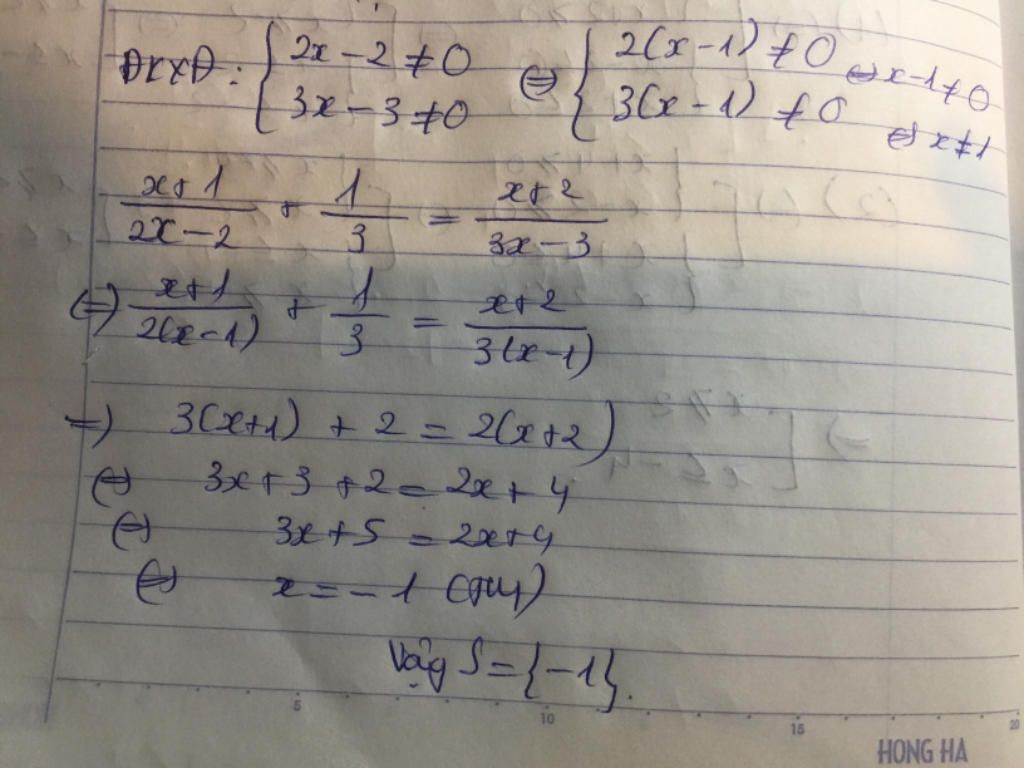 ĐKXĐ: { 2x - 2 ≠ 0 ⇔ { 2(x - 1) ≠ 0 ⇔ x - 1 ≠ 0
3x - 3 ≠ 0 3(x - 1) ≠ 0 ⇔ x ≠ 1
(x+1)/(2x-2) + 1/3 = (x+2)/(3x-3)
(=) (x+1)/(2(x-1)) + 1/3 = (x+2)/(3(x-1))
=) 3(x+1) + 2 = 2(x+2)
(=) 3x + 3 + 2 = 2x + 4
(=) 3x + 5 = 2x + 4
(=) x = - 1 (TM)
Vậy S = {-1}.
5 10 15 20
HONG HA